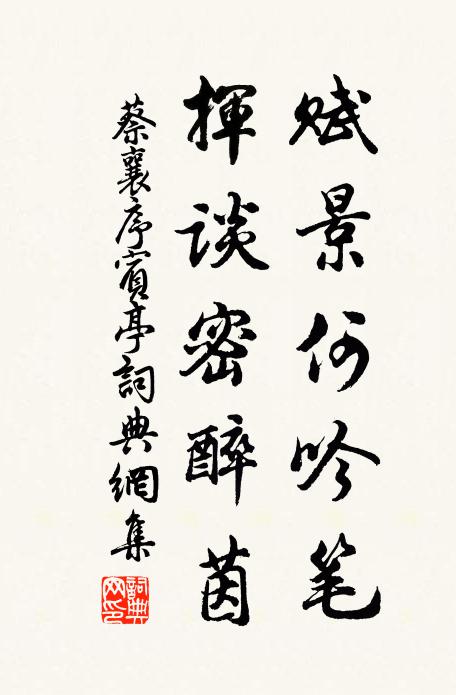 賦景何吟笔
揮談密醉茵
蔡襄序賓亭詞典網集
詞典網印